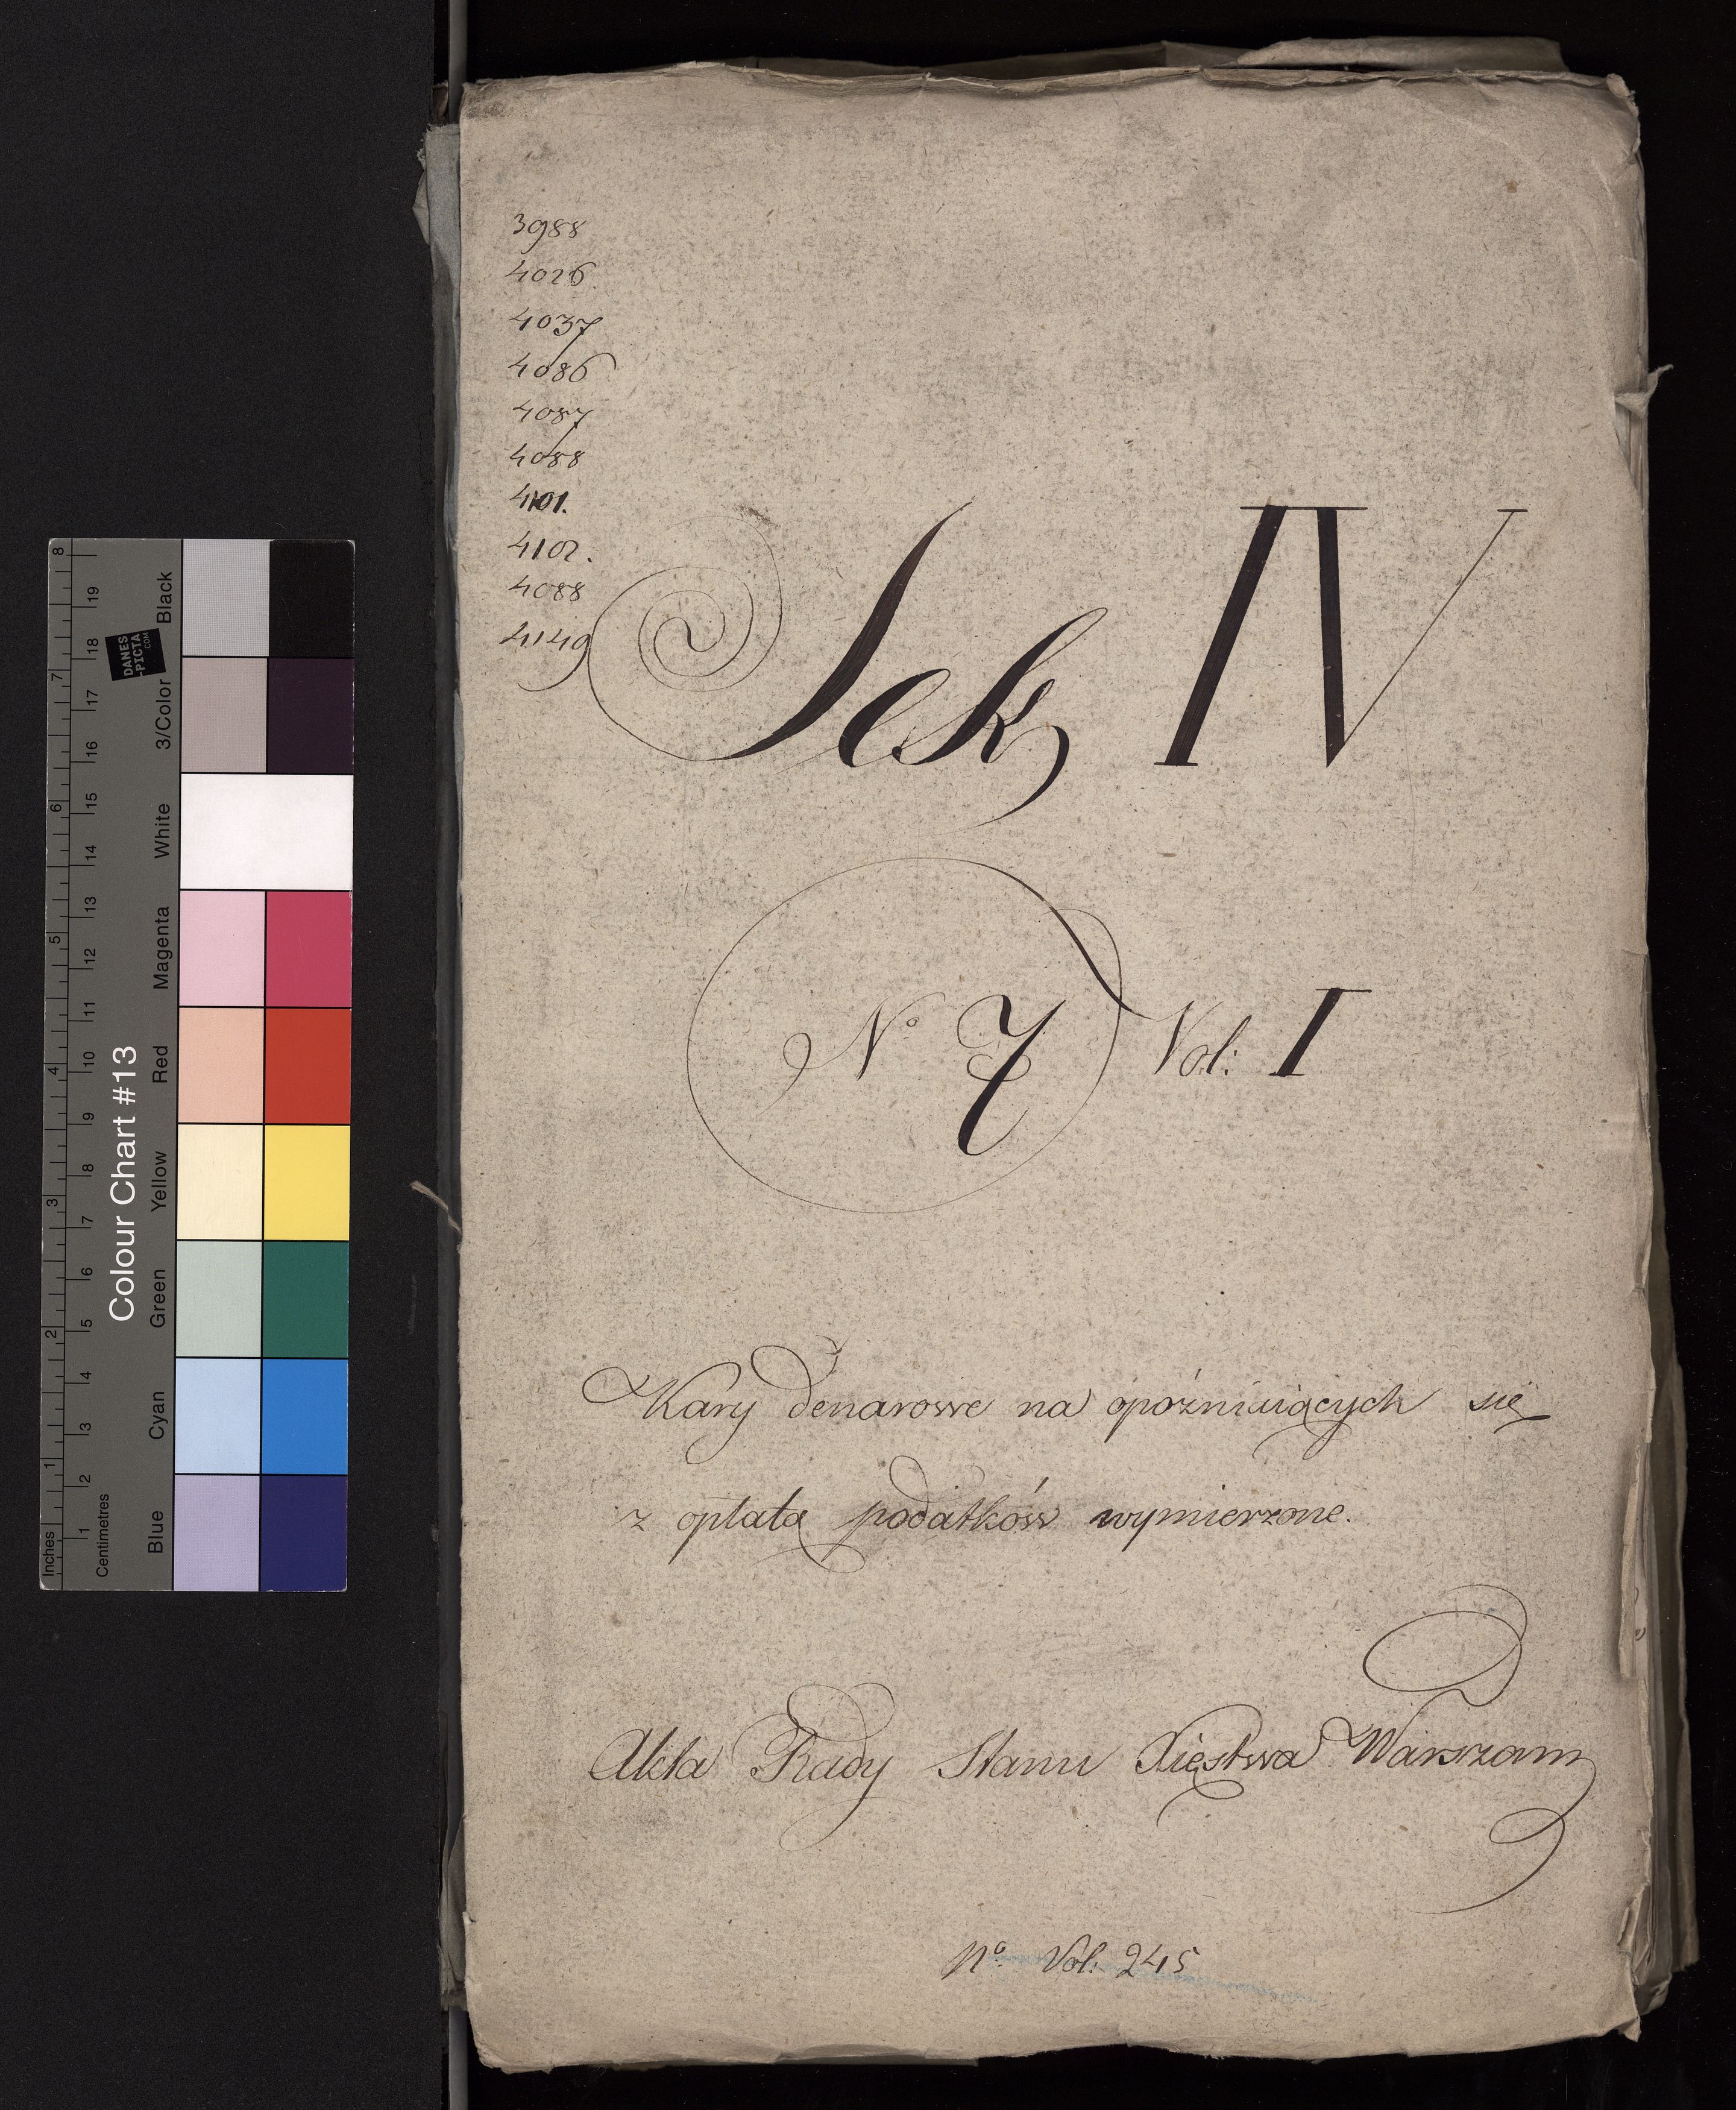 3988
4026.
4037
4086
4087
4088
4101.
4102.
4088
4149
Sek IV
No 7 Vol: I
Kary denarowe na opóźniaiących się
z opłatą podatków wymierzone.
Akta Rady Stanu Xięstwa Warszaw
No. Vol: 245
Colour Chart #13
Inches
1 2 3 4 5 6 7 8
Centimetres
1 2 3 4 5 6 7 8 9 10 11 12 13 14 15 16 17 18 19
Blue Cyan Green Yellow Red Magenta White 3/Color Black
DANES
-PICTA
.COM